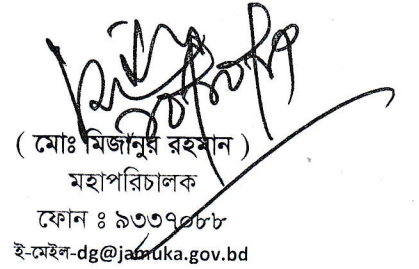 ( মোঃ মিজানুর রহমান )
মহাপরিচালক
ফোন ঃ ৯৩৩৭০৮৮
ই-মেইল-dg@jamuka.gov.bd